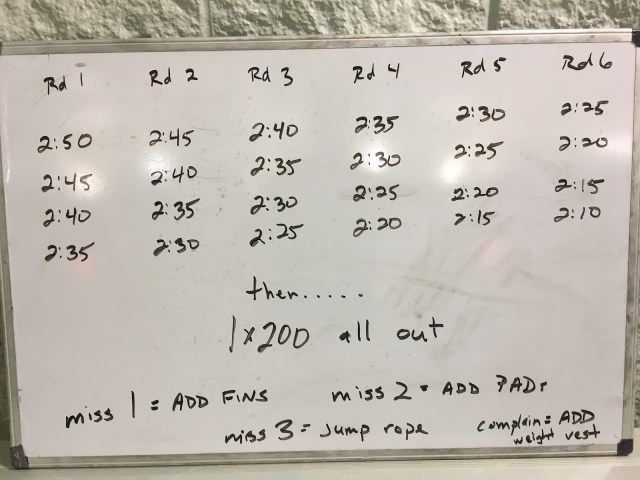 Rd 1 Rd 2 Rd 3 Rd 4 Rd 5 Rd 6
2:50 2:45 2:40 2:35 2:30 2:25
2:45 2:40 2:35 2:30 2:25 2:20
2:40 2:35 2:30 2:25 2:20 2:15
2:35 2:30 2:25 2:20 2:15 2:10
then.....
1x200 all out
miss 1 = ADD FINS miss 2 = ADD PADs
miss 3 = jump rope complain = ADD
weight vest